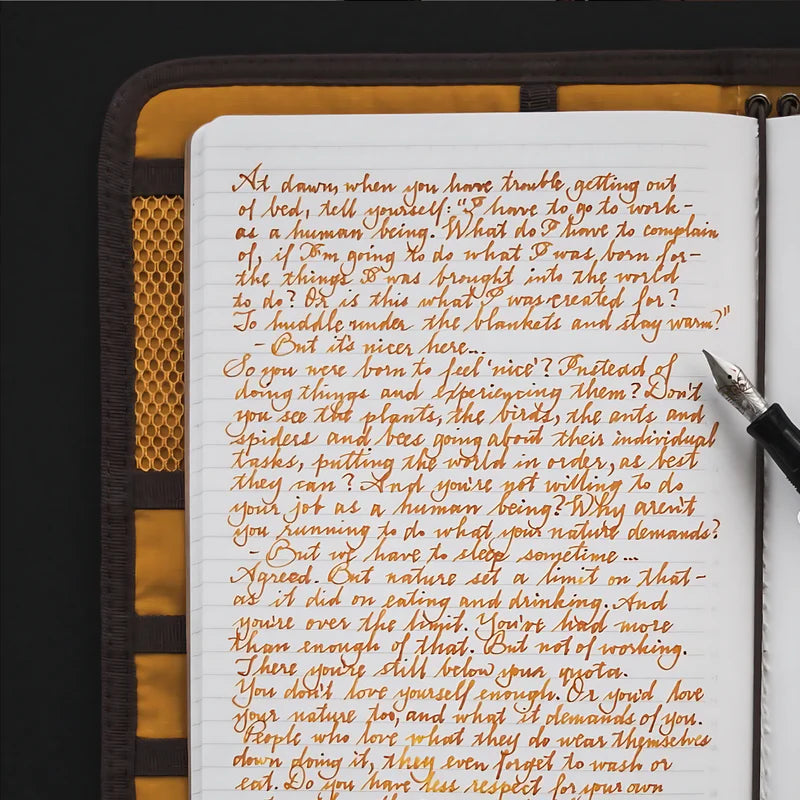 At dawn, when you have trouble getting out
of bed, tell yourself: "I have to go to work-
as a human being. What do I have to complain
of, if I'm going to do what I was born for-
the things I was brought into the world
to do? Or is this what I was created for?
To huddle under the blankets and stay warm?"
- But it's nicer here...
So you were born to feel 'nice'? Instead of
doing things and experiencing them? Don't
you see the plants, the birds, the ants and
spiders and bees going about their individual
tasks, putting the world in order, as best
they can? And you're not willing to do
your job as a human being? Why aren't
you running to do what your nature demands?
- But we have to sleep sometime...
Agreed. But nature set a limit on that-
as it did on eating and drinking. And
you're over the limit. You've had more
than enough of that. But not of working.
There you're still below your quota.
You don't love yourself enough. Or you'd love
your nature too, and what it demands of you.
People who love what they do wear themselves
down doing it, they even forget to wash or
eat. Do you have less respect for your own